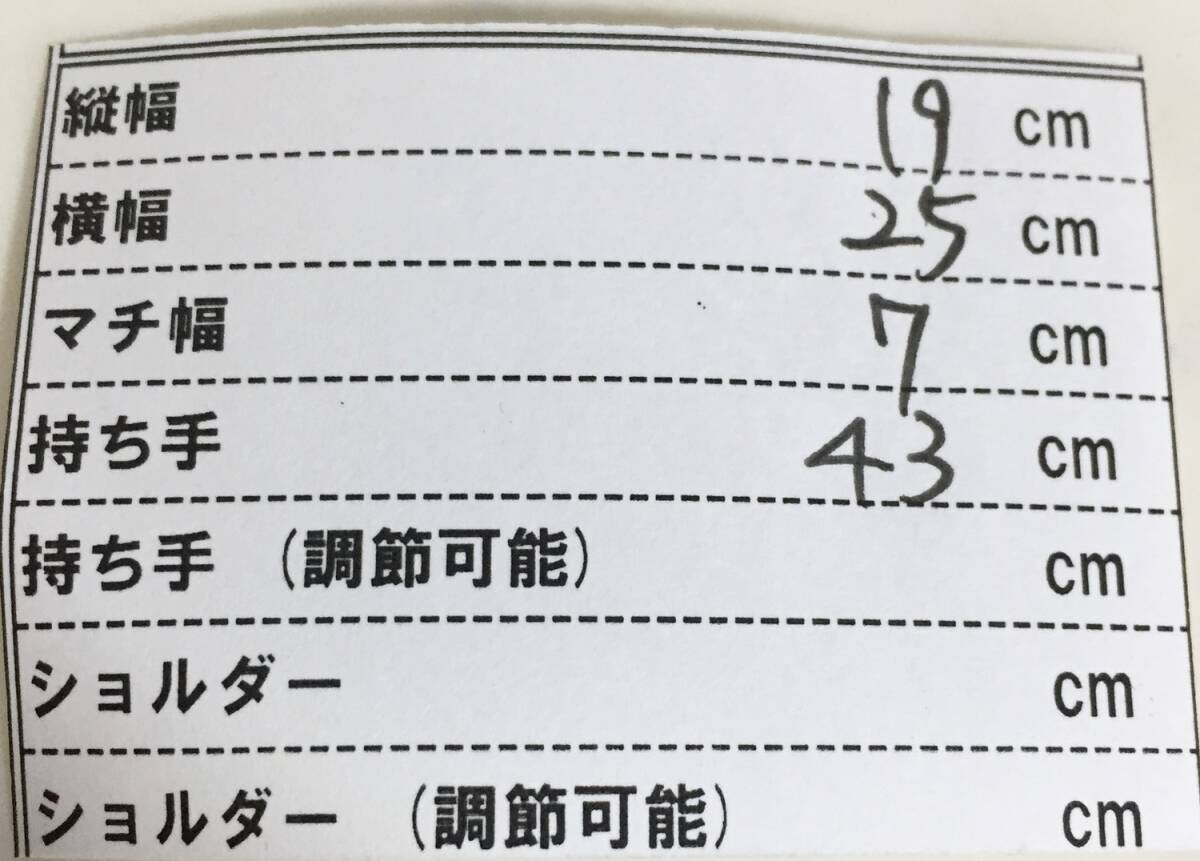 縦幅 19 cm
横幅 25 cm
マチ幅 7 cm
持ち手 43 cm
持ち手 (調節可能) cm
ショルダー cm
ショルダー (調節可能) cm